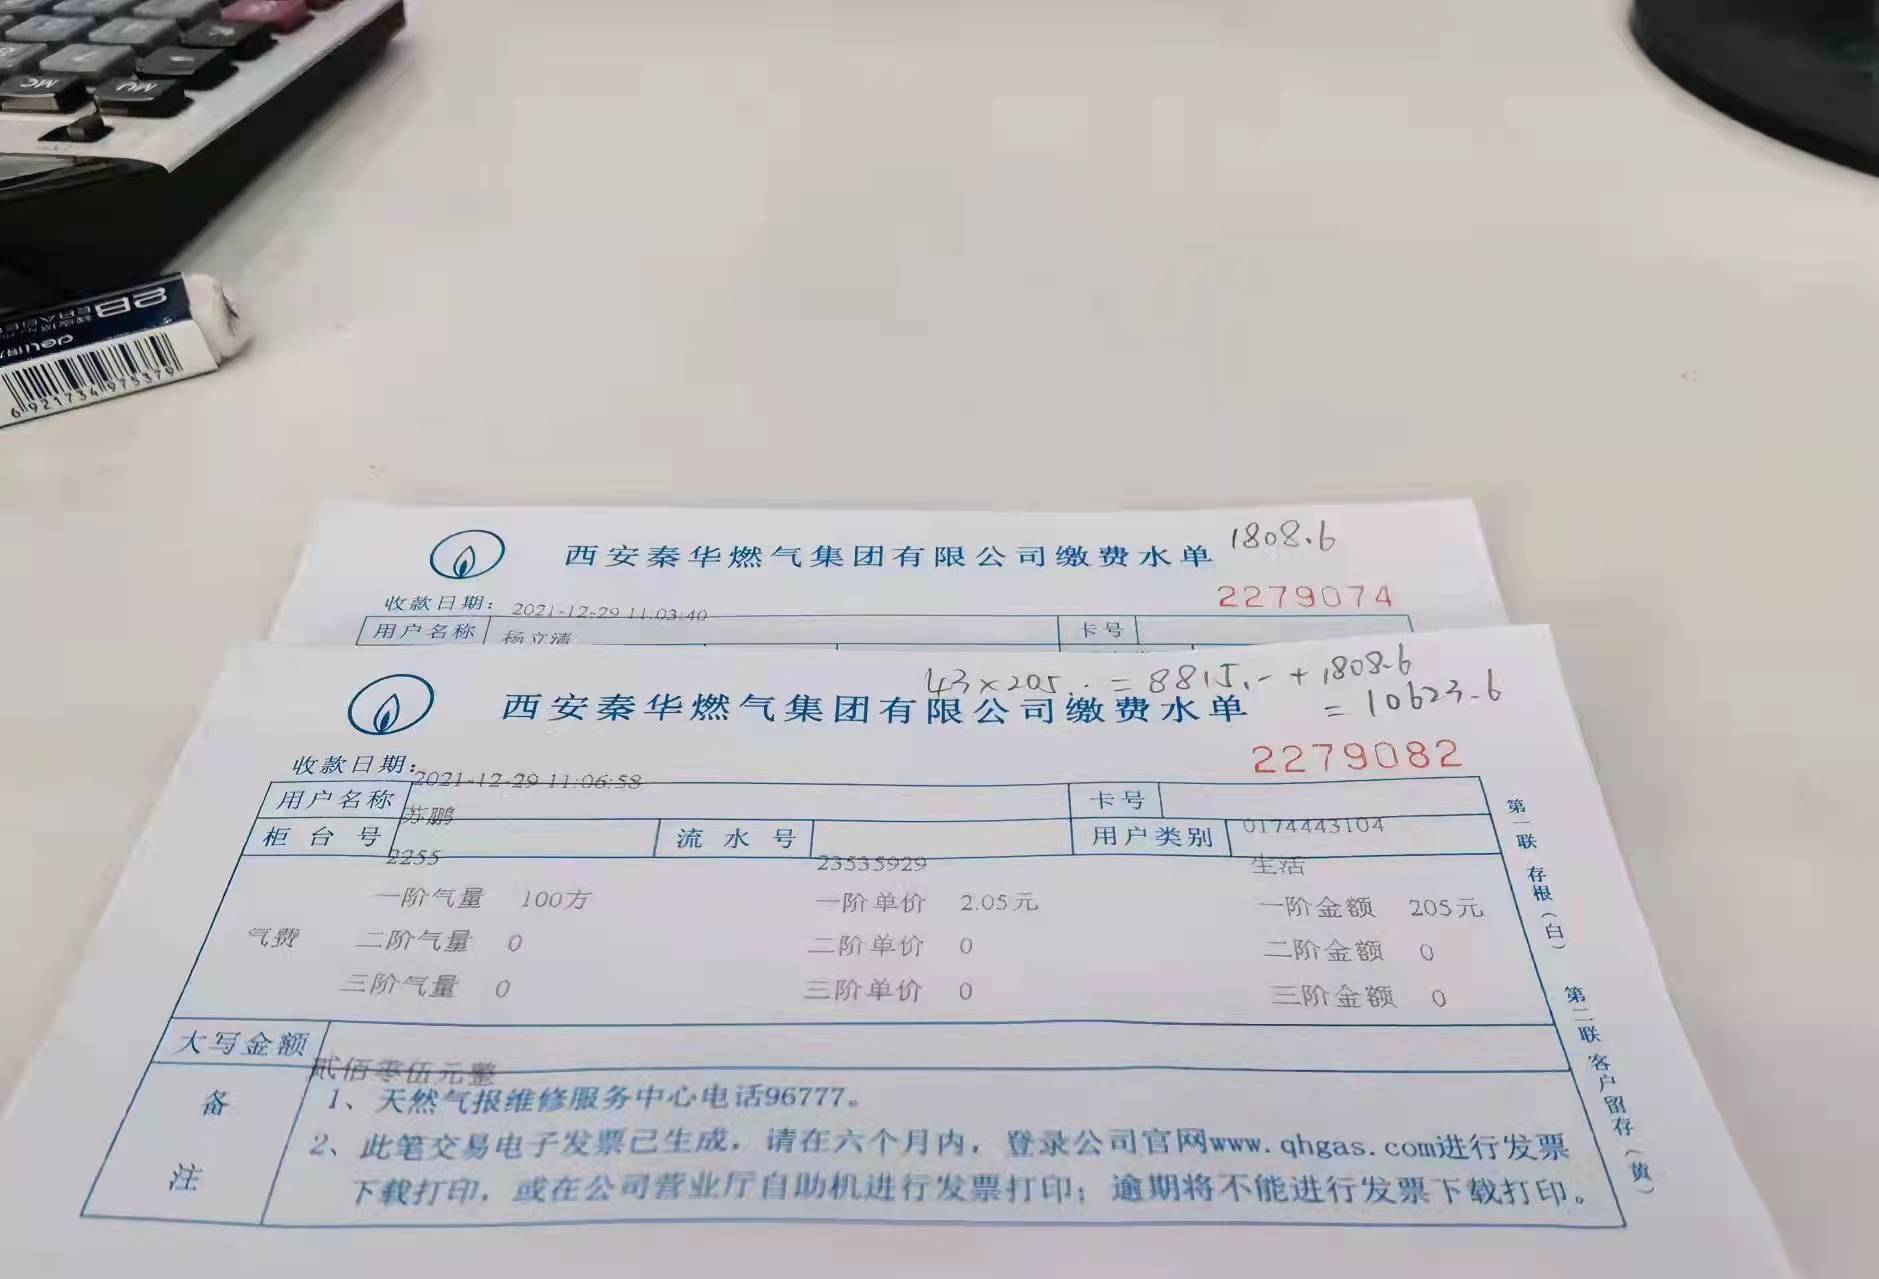 MC
MU
2B
deli
6 921734 975379
西安秦华燃气集团有限公司缴费水单
1808.6
2279074
收款日期: 2021-12-29 11:03:40
用户名称 杨立清 卡号
43×205.. = 8815.- + 1808.6
= 10623.6
西安秦华燃气集团有限公司缴费水单
2279082
收款日期: 2021-12-29 11:06:58
用户名称 苏鹏 卡号 0174443104
柜台号 2255 流水号 23535929 用户类别 生活
一阶气量 100方 一阶单价 2.05元 一阶金额 205元
气费 二阶气量 0 二阶单价 0 二阶金额 0
三阶气量 0 三阶单价 0 三阶金额 0
大写金额 贰佰零伍元整
备注
1、天然气报维修服务中心电话96777。
2、此笔交易电子发票已生成，请在六个月内，登录公司官网www.qhgas.com进行发票
下载打印，或在公司营业厅自助机进行发票打印；逾期将不能进行发票下载打印。
第一联 存根（白） 第二联 客户留存（黄）